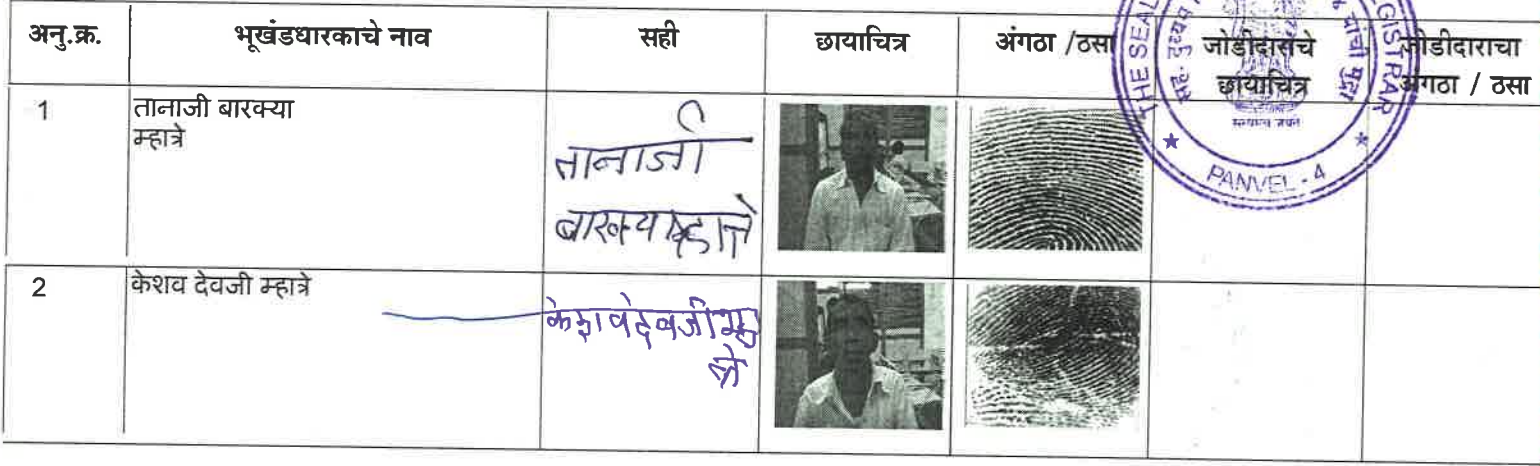 अनु.क्र. भूखंडधारकाचे नाव सही छायाचित्र अंगठा /ठसा जोडीदाराचे छायाचित्र जोडीदाराचा अंगठा / ठसा
1 तानाजी बारक्या
म्हात्रे
तानाजी
बारक्या म्हात्रे
2 केशव देवजी म्हात्रे
केशव देवजी म्हा
त्रे
THE SEAL
GISTRAR
सह. दुय्यम
यांची मुद्रा
सत्यमेव जयते
PANVEL - 4